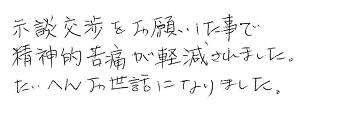 示談交渉をお願いした事で
精神的苦痛が軽減されました。
たいへんお世話になりました。